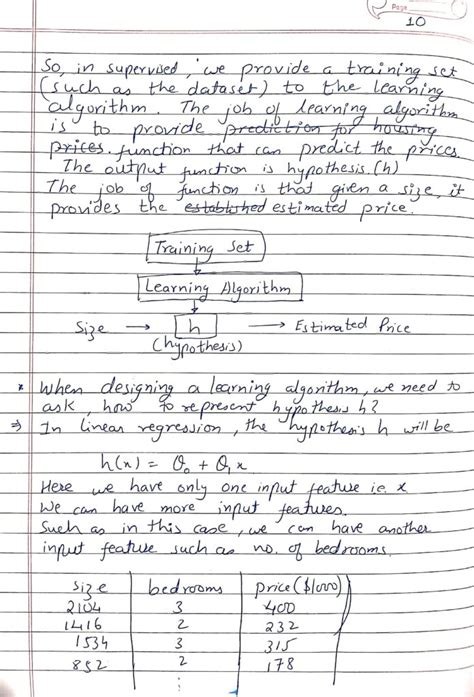 Page
10
So, in supervised, we provide a training set
(such as the dataset) to the learning
algorithm. The job of learning algorithm
is to provide prediction for housing
prices. function that can predict the prices.
The output function is hypothesis. (h)
The job of function is that given a size, it
provides the established estimated price.
Training Set
Learning Algorithm
Size → h → Estimated Price
(hypothesis)
* When designing a learning algorithm, we need to
ask, how to represent hypothesis h?
⇒ In linear regression, the hypothesis h will be
h(x) = θ₀ + θ₁ x
Here we have only one input feature i.e. x
We can have more input features.
Such as in this case, we can have another
input feature such as no. of bedrooms.
size bedrooms price ($1000)
2104 3 400
1416 2 232
1534 3 315
852 2 178
⋮